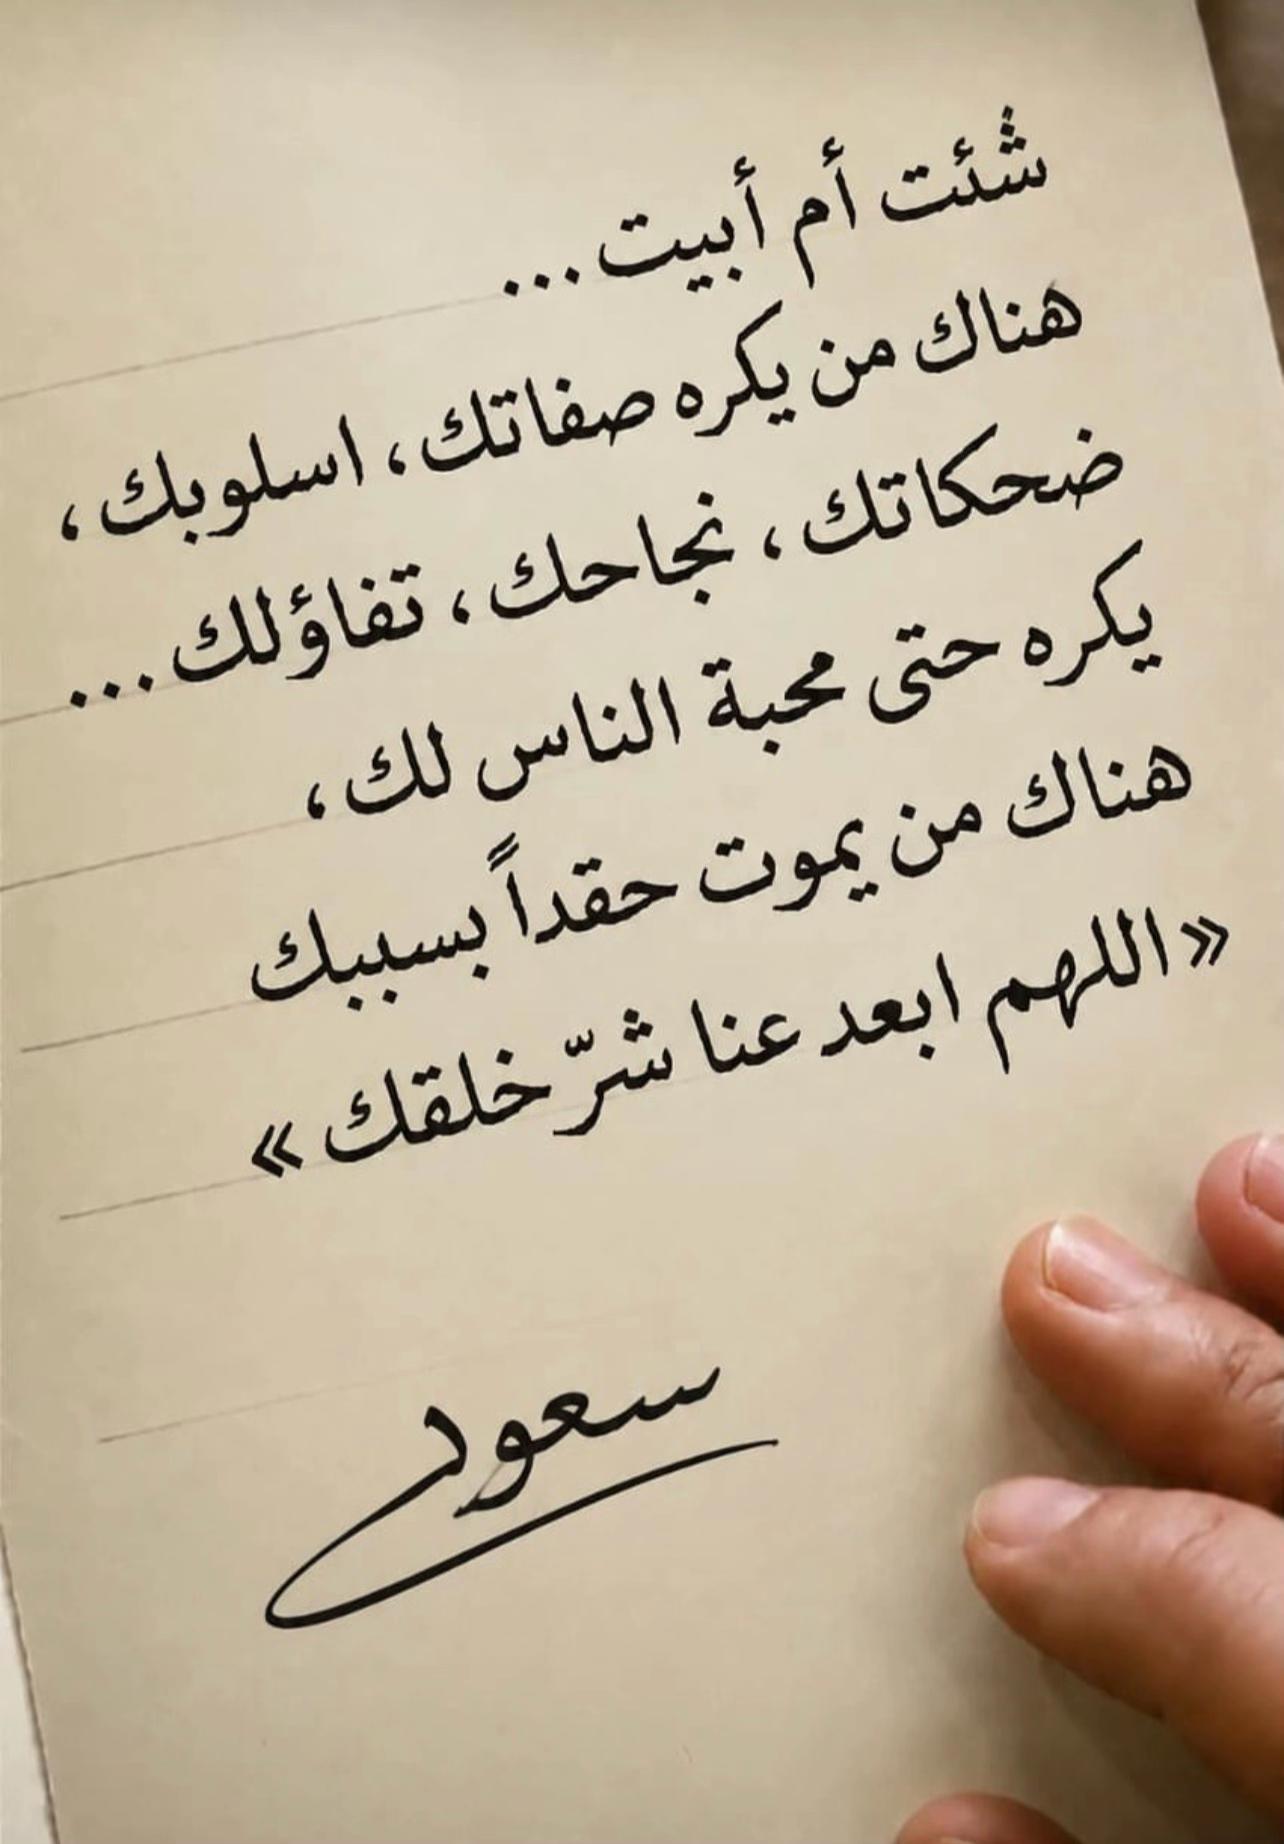 شُئت أم أبيت...
هناك من يكره صفاتك، اسلوبك،
ضحكاتك، نجاحك، تفاؤلك...
يكره حتى محبة الناس لك،
هناك من يموت حقداً بسببك
«اللهم ابعد عنا شرّ خلقك»
سعود